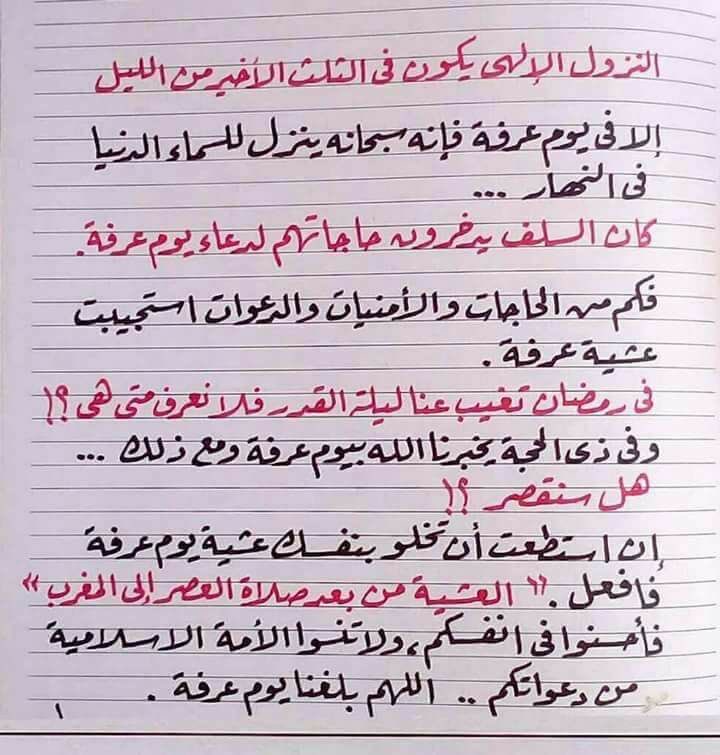 النزول الإلهى يكون فى الثلث الأخير من الليل
إلا فى يوم عرفة فإنه سبحانه ينزل للسماء الدنيا
فى النهار ...
كان السلف يدخرون حاجاتهم لدعاء يوم عرفة.
فكم من الحاجات والأمنيات والدعوات استجيبت
عشية عرفة .
فى رمضان تغيب عنا ليلة القدر فلا نعرف متى هى ؟!
وفى ذى الحجة يخبرنا الله بيوم عرفة ومع ذلك ...
هل سنقصر ؟!
إن استطعت أن تخلو بنفسك عشية يوم عرفة
فافعل . " العشية من بعد صلاة العصر إلى المغرب "
فأحسنوا فى انفسكم، ولا تنسوا الأمة الاسلامية
من دعواتكم .. اللهم بلغنا يوم عرفة .
١